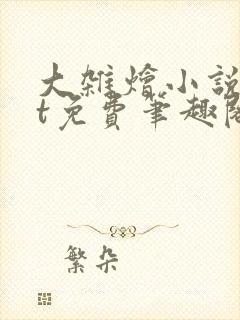 大雑燴小說
t免費筆趣閣
繁朵